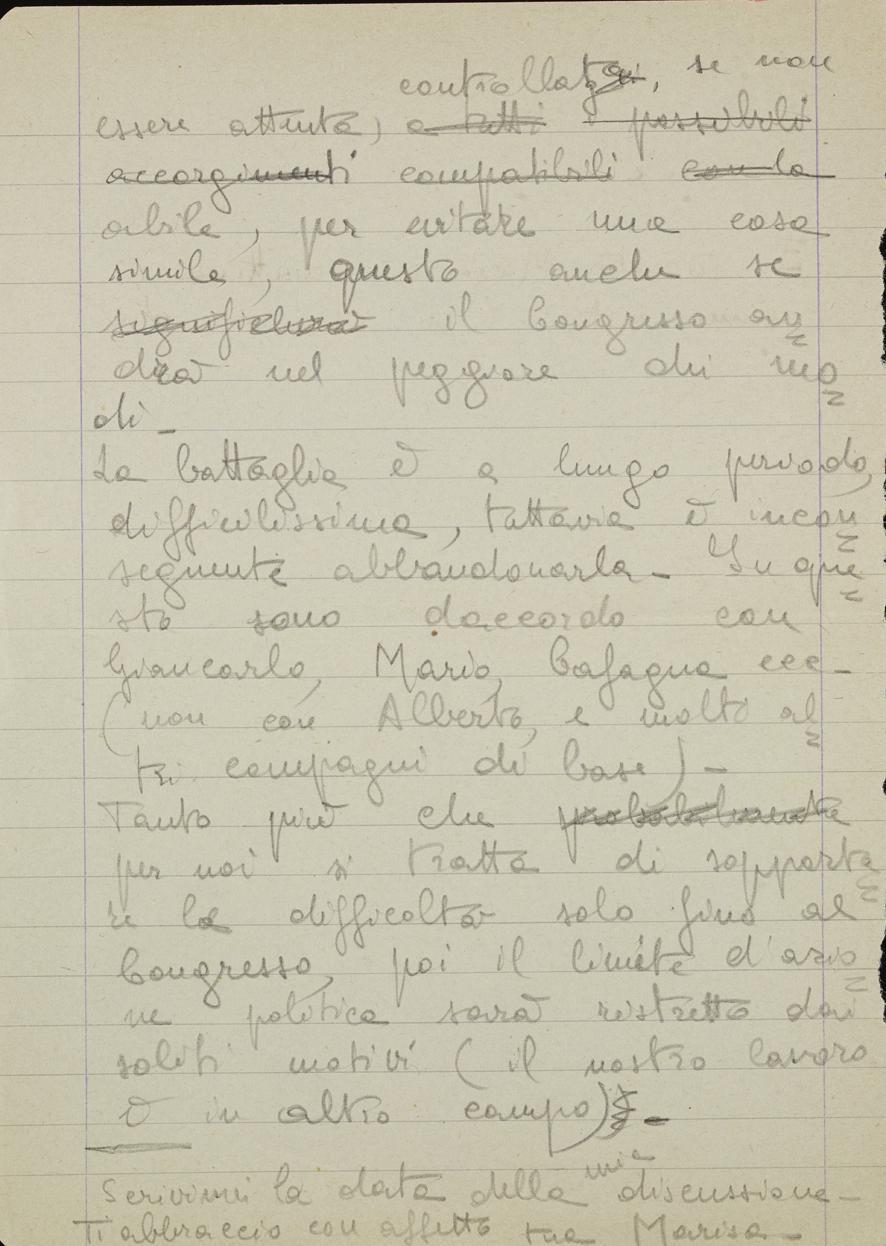 controllata, se non
essere attenta, a tutti i possibili
accorgimenti compatibili con la
abile, per evitare una cosa
simile, questo anche se
significherà il Congresso an
drà nel peggiore dei mo
di -
La battaglia è a lungo periodo,
difficilissima, tuttavia è incon
seguente abbandonarla - In que
sto sono daccordo con
Giancarlo, Mario, Cafagna ecc -
(non con Alberto, e molti al
tri compagni di base) -
Tanto più che probabilmente
per noi si tratta di sopporta
re le difficoltà solo fino al
Congresso, poi il limite d'azio
ne politica sarà ristretto dai
soliti motivi (il nostro lavoro
è in altro campo) -
mia
Scrivimi la data della discussione -
Ti abbraccio con affetto tua Marisa -